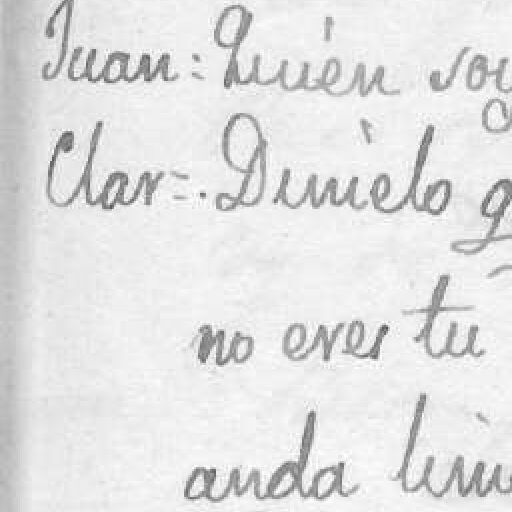 Juan: Quién soy
Clar=. Dimelo
no eres tu
anda